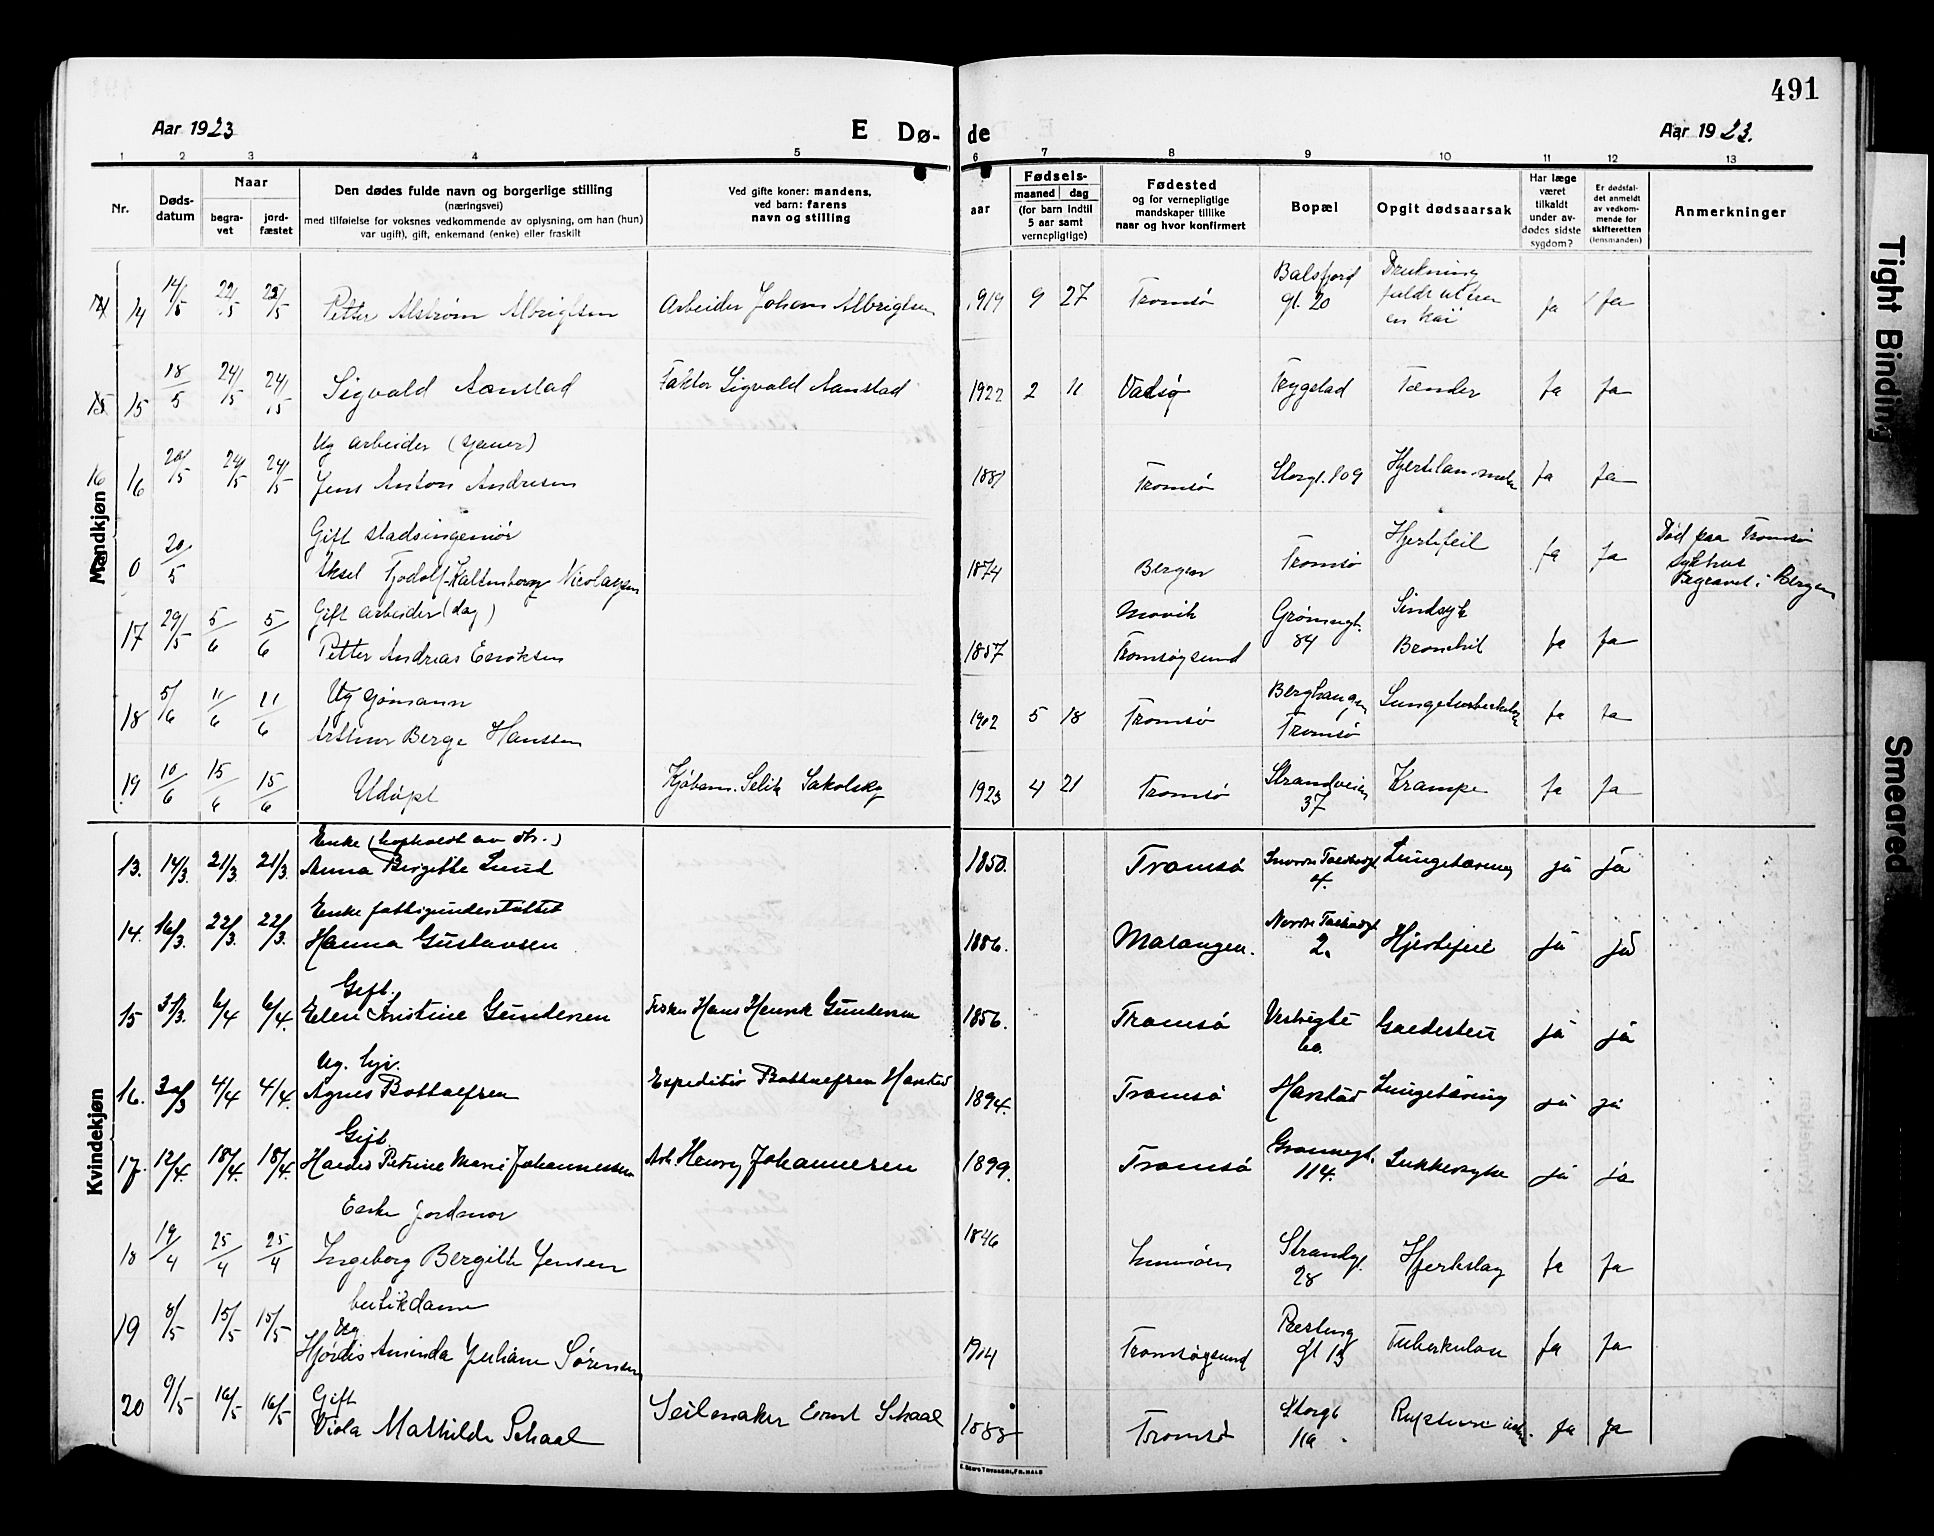 491
Aar 1923
E Dø-de
Aar 1923.
1 2 3 4 5 6 7 8 9 10 11 12 13
Nr.
Døds-datum
Naar
begra-vet
jord-fæstet
Den dødes fulde navn og borgerlige stilling
(næringsvei)
med tilføielse for voksnes vedkommende av oplysning, om han (hun)
var ugift), gift, enkemand (enke) eller fraskilt
Ved gifte koner: mandens,
ved barn: farens
navn og stilling
Fødsels-
aar
maaned dag
(for barn indtil
5 aar samt
vernepligtige)
Fødested
og for vernepligtige
mandskaper tillike
naar og hvor konfirmert
Bopæl
Opgit dødsaarsak
Har læge
været
tilkaldt
under av-
dødes sidste
sygdom?
Er dødsfal-
det anmeldt
av vedkom-
mende for
skifteretten
(lensmanden)
Anmerkninger
Mandkjøn
14 14/5 22/5 22/5 Petter Alstrøm Albrigtsen Arbeider Johans Albrigtsen 1919 9 27 Tromsø Balsfjord gt. 20 Drukning en kai ja ja
15 15 18/5 24/5 24/5 Sigvald Aanstad Faktor Sigvald Aanstad 1922 2 11 Vadsø Trygstad Tænder ja ja
Ug arbeider
16 16 20/5 24/5 24/5 Jens Anton Andresen 1881 Tromsø Storgt. 109 ja ja
Gift stadsingeniør
0 20/5 Aksel Tjodolf Kaltenborg Nicolaysen 1874 Bergen Tromsø Hjertefeil ja ja Død paa Tromsø sykehus Begravet i Bergen
Gift arbeider (dag)
17 29/5 5/6 5/6 Petter Andreas Enoksen 1857 Movik Tromsøysund Grønnegt. 84 Sindsyk Bronchit ja ja
Ug sjømann
18 5/6 11/6 11/6 Arthur Berge Hanssen 1902 5 18 Tromsø Berghaugen Tromsø Lungetuberkulose ja ja
19 10/6 15/6 15/6 Udøpt Kjøbm. Selik Sakolsky 1923 4 21 Tromsø Strandveien 37 Krampe ja ja
Kvindekjøn
Enke
13. 14/3. 21/3. 21/3. Anna Birgitte Lund 1850. Tromsø 4. Lungetæring ja ja
Enke fattigunderstøttet
14. 16/3. 22/3. 22/3. Hanna Gustavsen 1856. Malangen. 2. Hjertefeil ja ja
Gift.
15 31/3. 6/4 6/4. Elen Kristine Gundersen Fisker Hans Henrik Gundersen 1856. Tromsø Vestregte 60. Galdesten ja ja
Ug. hjv.
16. 30/3 4/4 4/4. Agnes Bottolfsen Expeditør Bottolfsen Harstad 1894. Tromsø Harstad Lungetæring ja ja
Gift.
17. 12/4. 18/4. 18/4. Petrine Marie Johannessen Arb. Henry Johannesen 1899. Tromsø Grønnegt. 114. Sukkersyke ja ja
Enke Jordmor
18 19/4 25/4 25/4 Ingeborg Bergitte Jensen 1846 Strandgt. 28 Hjerteslag ja ja
butikdame
Ug
19 8/5 15/5 15/5 Hjørdis Aminda Juliane Sørensen 1904 Tromsøysund gt 13 Tuberkulose ja ja
Gift
20 9/5 16/5 16/5 Viola Mathilde Schaal Seilmaker Ernst Schaal 1888 Tromsø Storgt 11a ja ja
Tight Binding
Smeared